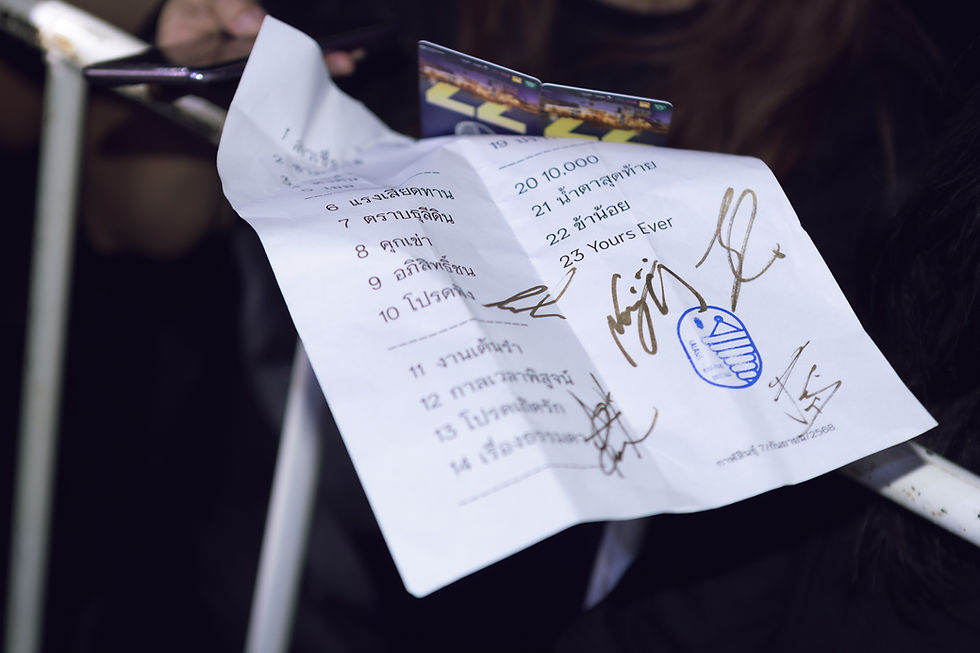 6 แรงเสียดทาน
7 ตราบธุลีดิน
8 คุกเข่า
9 อภิสิทธิ์ชน
10 โปรดฟัง
11 งานเต้นรำ
12 กาลเวลาพิสูจน์
13 โปรดเถิดรัก
14 เรื่องธรรมดา
19
20 10,000
21 น้ำตาสุดท้าย
22 ข้าน้อย
23 Yours Ever
กาฬสินธุ์ 7/กันยายน/2568